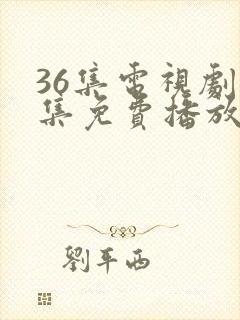 36集電視劇
集免費播放
劉平西